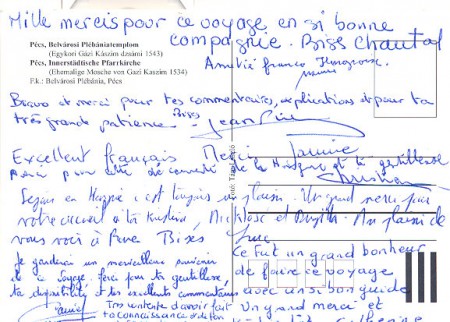 Mille mercis pour ce voyage en si bonne
compagnie. Biss Chantal
Pécs, Belvárosi Plébániatemplom
(Egykori Gázi Kászim dzsámi 1543)
Pécs, Innerstädtische Pfarrkirche
(Ehemalige Mosche von Gazi Kaszim 1534)
F.k.: Belvárosi Plébánia, Pécs
Amitié franco Hongroise
Bravo et merci pour tes commentaires, explications et pour ta
très grande patience. Bises Jean
Excellent français Merci
pour de la Hongrie et ta gentillesse
Christian
Séjour en Hongrie c'est toujours un plaisir. Un grand merci pour
votre accueil à Miklose et Au plaisir de
vous voir à Bises
Je garderai un merveilleux souvenir
de ce voyage. Merci pour ta gentillesse
ta disponibilité et tes excellents commentaires
Ce fut un grand bonheur
de faire ce voyage
avec un si bon guide
Un grand merci et
Très contente d'avoir fait
ta connaissance